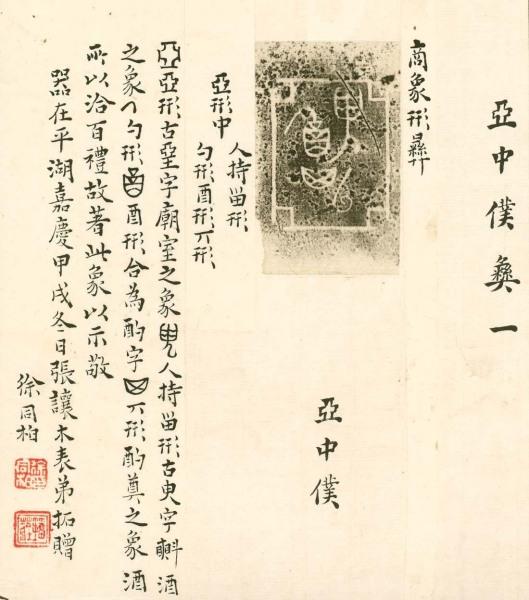 亞中僕彝一
商象形彝
亞中僕
亞形中
人持甾形
勺形酉形丌形
亞亞形古堊字廟室之象人持甾形古字酒
之象勺形酉形合為酌字丌形酌奠之象酒
所以洽百禮故著此象以示敬
器在平湖嘉慶甲戌冬日張讓木表弟拓贈
徐同柏